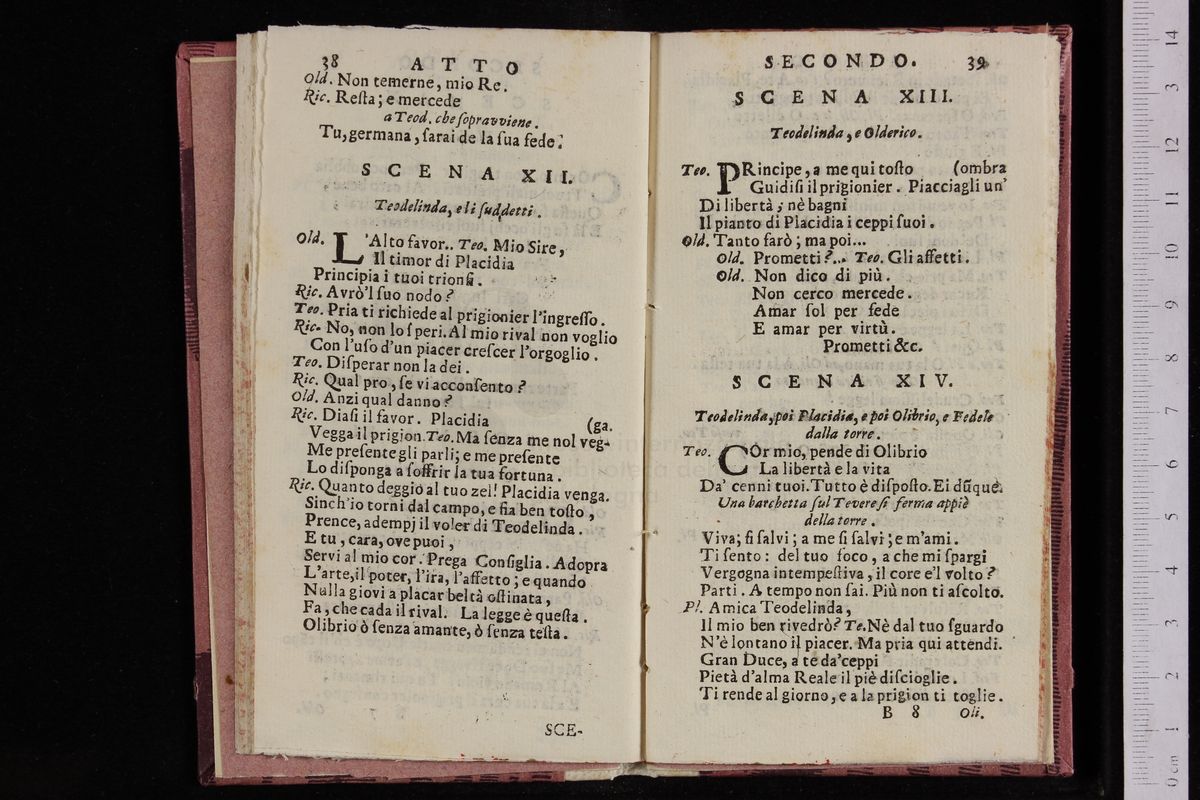 38 ATTO
Old. Non temerne, mio Re.
Ric. Reſta; e mercede
a Teod. che ſopravviene.
Tu, germana, ſarai de la ſua fede.
SCENA XII.
Teodelinda, e li ſuddetti.
Old. L'Alto favor.. Teo. Mio Sire,
Il timor di Placidia
Principia i tuoi trionfi.
Ric. Avrò'l ſuo nodo?
Teo. Pria ti richiede al prigionier l'ingreſſo.
Ric. No, non lo ſperi. Al mio rival non voglio
Con l'uſo d'un piacer creſcer l'orgoglio.
Teo. Diſperar non la dei.
Ric. Qual pro, ſe vi acconſento?
Old. Anzi qual danno?
Ric. Diaſi il favor. Placidia (ga.
Vegga il prigion. Teo. Ma ſenza me nol veg-
Me preſente gli parli; e me preſente
Lo diſponga a ſoffrir la tua fortuna.
Ric. Quanto deggio al tuo zel! Placidia venga.
Sinch'io torni dal campo, e fia ben toſto,
Prence, adempj il voler di Teodelinda.
E tu, cara, ove puoi,
Servi al mio cor. Prega Conſiglia. Adopra
L'arte, il poter, l'ira, l'affetto; e quando
Nulla giovi a placar beltà oſtinata,
Fa, che cada il rival. La legge è queſta.
Olibrio ò ſenza amante, ò ſenza teſta.
SCE-
SECONDO. 39
SCENA XIII.
Teodelinda, e Olderico.
Teo. PRincipe, a me qui toſto (ombra
Guidiſi il prigionier. Piacciagli un'
Di libertà; nè bagni
Il pianto di Placidia i ceppi ſuoi.
Old. Tanto farò; ma poi...
Old. Prometti?... Teo. Gli affetti.
Old. Non dico di più.
Non cerco mercede.
Amar ſol per fede
E amar per virtù.
Prometti &c.
SCENA XIV.
Teodelinda, poi Placidia, e poi Olibrio, e Fedele
dalla torre.
Teo. COr mio, pende di Olibrio
La libertà e la vita
Da' cenni tuoi. Tutto è diſpoſto. Ei dũque
Una barchetta ſul Tevere ſi ferma appiè
della torre.
Viva; ſi ſalvi; a me ſi ſalvi; e m'ami.
Ti ſento: del tuo foco, a che mi ſpargi
Vergogna intempeſtiva, il core e'l volto?
Parti. A tempo non ſai. Più non ti aſcolto.
Pl. Amica Teodelinda,
Il mio ben rivedrò? Te. Nè dal tuo ſguardo
N'è lontano il piacer. Ma pria qui attendi.
Gran Duce, a te da' ceppi
Pietà d'alma Reale il piè diſcioglie.
Ti rende al giorno, e a la prigion ti toglie.
B 8 Oli.
14
13
12
11
10
9
8
7
6
5
4
3
2
1
0 cm